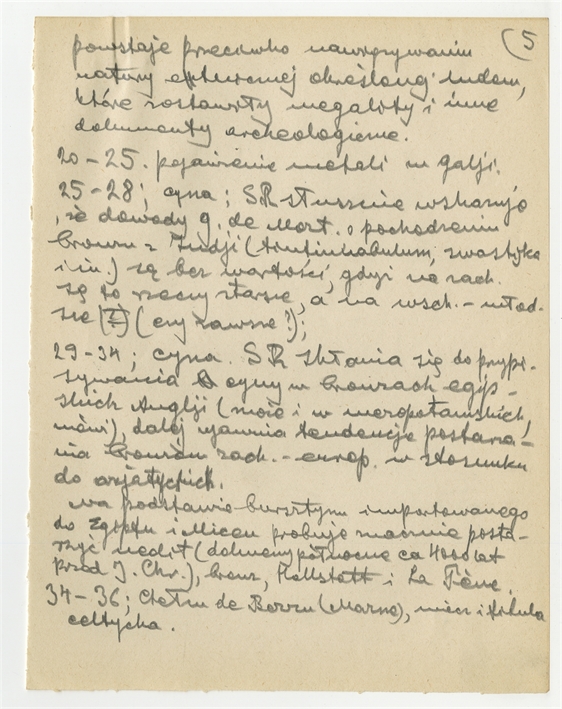 (5
powstaje przeciwko nawiązywaniu
natury kulturowej określonej ludom,
które zostawiły megality i inne
dokumenty archeologiczne.
20-25. pojawienie metali w Galji.
25-28; cyna; SR słusznie wskazuje
, że dowody g. de Mort. o pochodzeniu
bronzu z Indji (tintinnabulum, swastyka
i in.) są bez wartości, gdyż na zach.
są to rzeczy starsze, a na wsch. - młod-
sze (czy zawsze?);
29-34; cyna. SR skłania się do przypi-
sywania cyny w bronzach egip-
skich Anglji (może i w mezopotamskich,
mówi), dalej ujawnia tendencje postarza-
nia bronzów zach.-europ. w stosunku
do azjatyckich.
Na podstawie bursztynu importowanego
do Egiptu i Micen próbuje znacznie posta-
rzyć neolit (dolmeny północne ca 4000 lat
przed J. Chr.), bronz, Hallstatt i La Tène.
34-36; (Marne), miecz i fibula
celtycka.